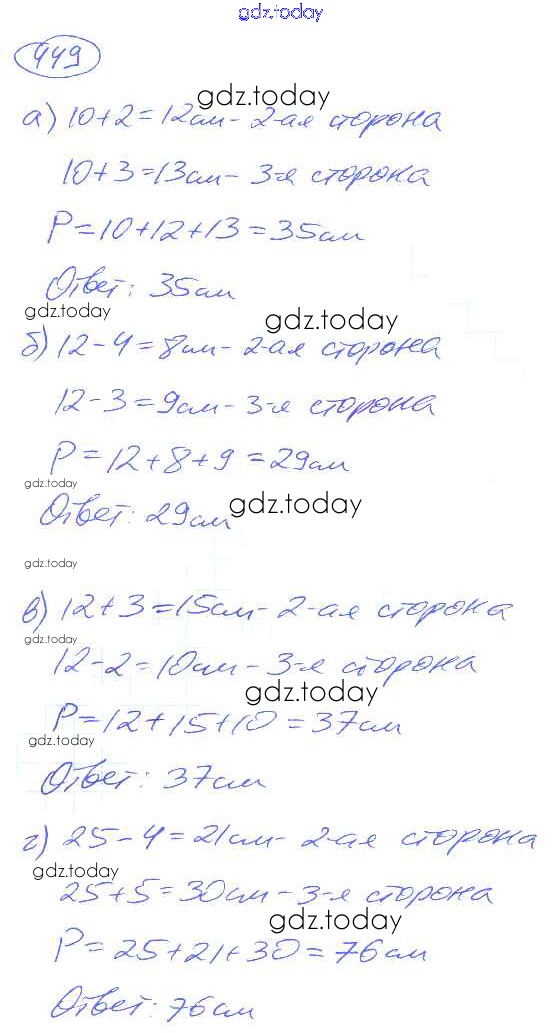 gdz.today
449
gdz.today
а) 10+2=12см - 2-ая сторона
10+3=13см - 3-я сторона
P=10+12+13=35см
Ответ: 35см
gdz.today
gdz.today
б) 12-4=8см - 2-ая сторона
12-3=9см - 3-я сторона
P=12+8+9=29см
gdz.today
Ответ: 29см
gdz.today
gdz.today
в) 12+3=15см - 2-ая сторона
gdz.today
12-2=10см - 3-я сторона
gdz.today
P=12+15+10=37см
gdz.today
Ответ: 37см
г) 25-4=21см - 2-ая сторона
gdz.today
25+5=30см - 3-я сторона
gdz.today
P=25+21+30=76см
Ответ: 76см